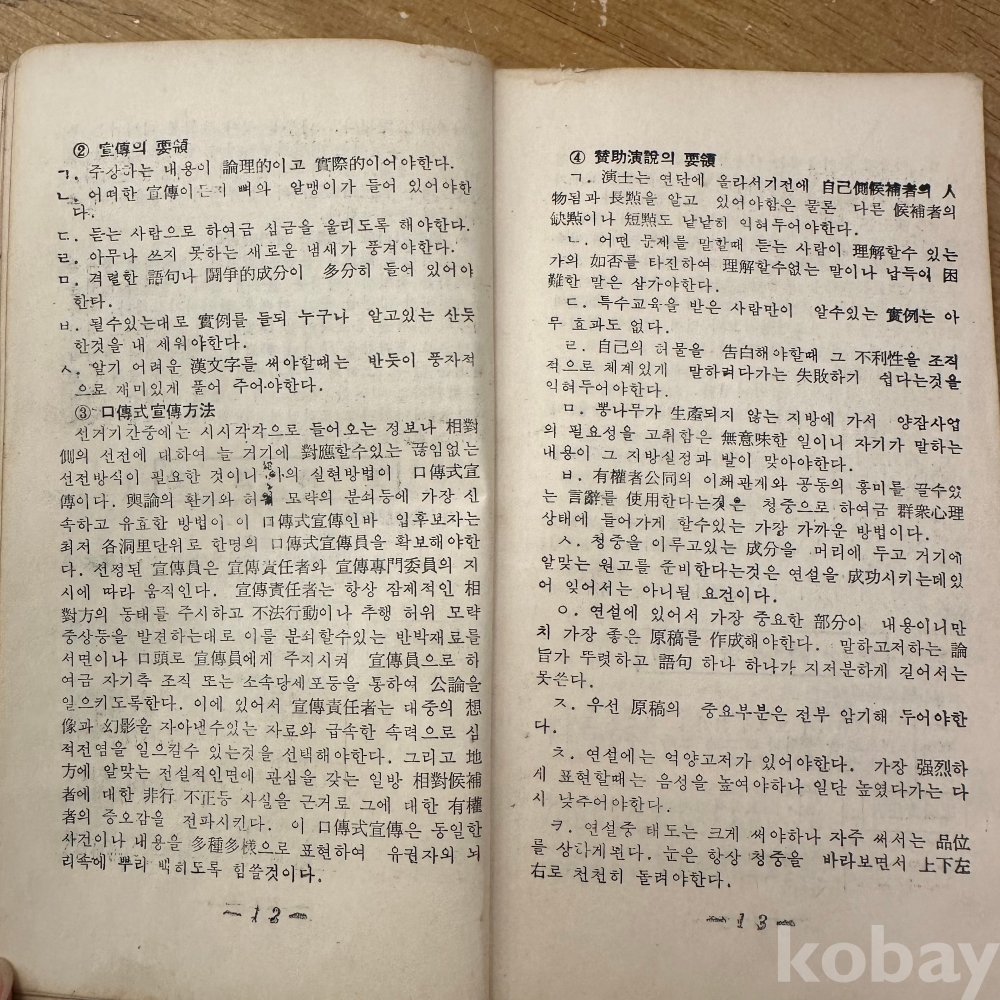 ② 宣傳의 要領
ㄱ. 주장하는 내용이 論理的이고 實際的이어야한다.
ㄴ. 어떠한 宣傳이든지 뼈와 알맹이가 들어 있어야한
다.
ㄷ. 듣는 사람으로 하여금 심금을 울리도록 해야한다.
ㄹ. 아무나 쓰지 못하는 새로운 냄새가 풍겨야한다.
ㅁ. 격렬한 語句나 鬪爭的成分이 多分히 들어 있어야
한다.
ㅂ. 될수있는대로 實例를 들되 누구나 알고있는 산듯
한것을 내 세워야한다.
ㅅ. 알기 어려운 漢文字를 써야할때는 반듯이 풍자적
으로 재미있게 풀어 주어야한다.
③ 口傳式宣傳方法
선거기간중에는 시시각각으로 들어오는 정보나 相對
側의 선전에 대하여 늘 거기에 對應할수있는 끊임없는
선전방식이 필요한 것이니 의 실현방법이 口傳式宣
傳이다. 輿論의 환기와 허위 모략의 분쇄등에 가장 신
속하고 유효한 방법이 이 口傳式宣傳인바 입후보자는
최저 各洞里단위로 한명의 口傳式宣傳員을 확보해야한
다. 선정된 宣傳員은 宣傳責任者와 宣傳專門委員의 지
시에 따라 움직인다. 宣傳責任者는 항상 잠제적인 相
對方의 동태를 주시하고 不法行動이나 추행 허위 모략
중상등을 발전하는대로 이를 분쇄할수있는 반박재료를
서면이나 口頭로 宣傳員에게 주지시켜 宣傳員으로 하
여금 자기측 조직 또는 소속당세포등을 통하여 公論을
일으키도록한다. 이에 있어서 宣傳責任者는 대중의 想
像과 幻影을 자아낼수있는 자료와 급속한 속력으로 심
적전염을 일으킬수 있는것을 선택해야한다. 그리고 地
方에 알맞는 전설적인면에 관심을 갖는 일방 相對候補
者에 대한 非行 不正등 사실을 근거로 그에 대한 有權
者의 증오감을 전파시킨다. 이 口傳式宣傳은 동일한
사건이나 내용을 多種多樣으로 표현하여 유권자의 뇌
리속에 뿌리 백히도록 힘쓸것이다.
—12—
④ 贊助演說의 要領
ㄱ. 演士는 연단에 올라서기전에 自己側候補者의 人
物됨과 長點을 알고 있어야함은 물론 다른 候補者의
缺點이나 短點도 낱낱히 익혀두어야한다.
ㄴ. 어떤 문제를 말할때 듣는 사람이 理解할수 있는
가의 如否를 타진하여 理解할수없는 말이나 납득이 困
難한 말은 삼가야한다.
ㄷ. 특수교육을 받은 사람만이 알수있는 實例는 아
무 효과도 없다.
ㄹ. 自己의 허물을 告白해야할때 그 不利性을 조직
적으로 체계있게 말하려다가는 失敗하기 쉽다는것을
익혀두어야한다.
ㅁ. 뽕나무가 生產되지 않는 지방에 가서 양잠사업
의 필요성을 고취함은 無意味한 일이니 자기가 말하는
내용이 그 지방실정과 발이 맞아야한다.
ㅂ. 有權者公同의 이해관계와 공동의 흥미를 끌수있
는 言辭를 使用한다는것은 청중으로 하여금 群衆心理
상태에 들어가게 할수있는 가장 가까운 방법이다.
ㅅ. 청중을 이루고있는 成分을 머리에 두고 거기에
알맞는 원고를 준비한다는것은 연설을 成功시키는데있
어 잊어서는 아니될 요건이다.
ㅇ. 연설에 있어서 가장 중요한 部分이 내용이니만
치 가장 좋은 原稿를 作成해야한다. 말하고저하는 論
旨가 뚜렷하고 語句 하나 하나가 지저분하게 길어서는
못쓴다.
ㅈ. 우선 原稿의 중요부분은 전부 암기해 두어야한
다.
ㅊ. 연설에는 억양고저가 있어야한다. 가장 强烈하
게 표현할때는 음성을 높여야하나 일단 높였다가는 다
시 낮추어야한다.
ㅋ. 연설중 태도는 크게 써야하나 자주 써서는 品位
를 상하게된다. 눈은 항상 청중을 바라보면서 上下左
右로 천천히 돌려야한다.
—13—
kobay